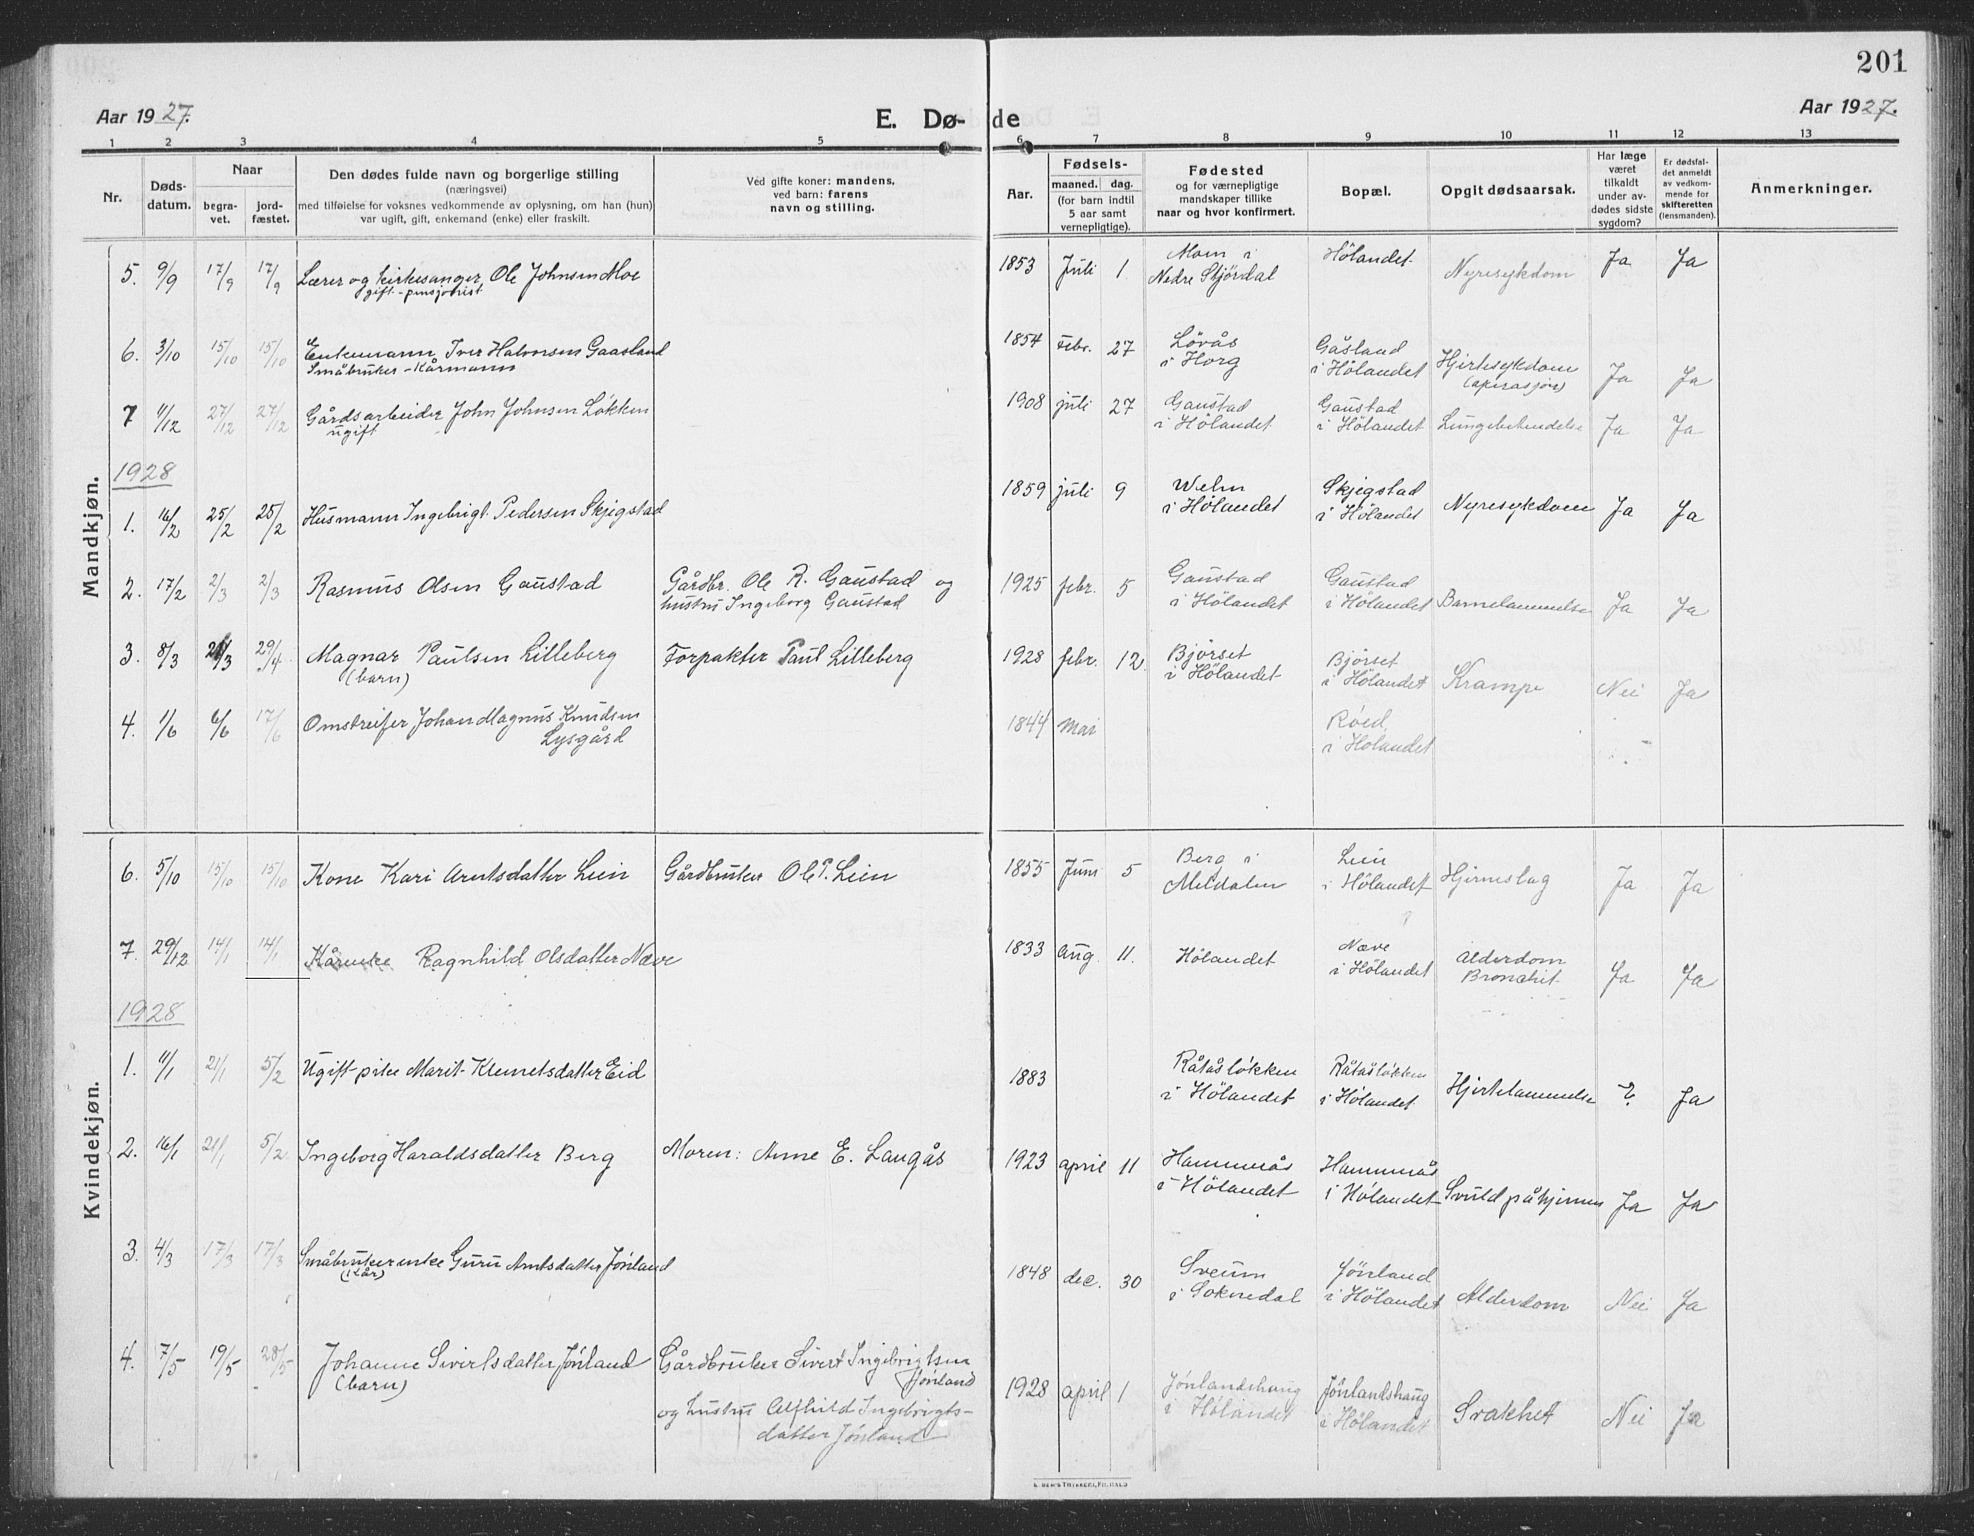 201
Aar 1927.
E. Dø-
de
Aar 1927.
1 2 3 4 5 6 7 8 9 10 11 12 13
Nr.
Døds-
datum.
Naar
begra-
vet.
jord-
fæstet.
Den dødes fulde navn og borgerlige stilling
(næringsvei)
med tilføielse for voksnes vedkommende av oplysning, om han (hun)
var ugift, gift, enkemand (enke) eller fraskilt.
Ved gifte koner: mandens,
ved barn: farens
navn og stilling.
Aar.
Fødsels-
maaned. dag.
(for barn indtil
5 aar samt
vernepligtige).
Fødested
og for værnepligtige
mandskaper tillike
naar og hvor konfirmert.
Bopæl.
Opgit dødsaarsak.
Har læge
været
tilkaldt
under av-
dødes sidste
sygdom?
Er dødsfal-
det anmeldt
av vedkom-
mende for
skifteretten
(lensmanden).
Anmerkninger.
Mandkjøn.
5. 9/9 17/9 17/9 Lærer og kirkesanger Ole Johnsen Moe
gift - pensjonist
1853 Juli 1 Moen i
Nedre Stjørdal
Hölandet
Nyresykdom Ja Ja
6. 3/10 15/10 15/10 Enkemann Iver Halvorsen Gaasland
Småbruker - Kårmann
1854 Febr. 27 Lövås
i Horg
Gåsland
i Hölandet
Hjertesykdom
(operasjon)
Ja Ja
7 4/12 27/12 27/12 Gårdsarbeider John Johnsen Løkken
ugift
1908 juli 27 Gaustad
i Hölandet
Gaustad
i Hölandet
Lungebetendelse Ja Ja
1928
1. 16/2 25/2 25/2 Husmann Ingebrigt Pedersen Skjegstad
1859 juli 9 Welm
i Hölandet
Skjegstad
i Hölandet
Nyresykdom Ja Ja
2. 17/2 2/3 2/3 Rasmus Olsen Gaustad
Gårdbr. Ole R. Gaustad og
hustru Ingeborg Gaustad
1925 febr. 5 Gaustad
i Hölandet
Gaustad
i Hölandet
Barnelammelse Ja Ja
3. 8/3 21/3 29/4 Magnar Paulsen Lilleberg
(barn)
Forpakter Paul Lilleberg
1928 febr. 12. Bjørset
i Hölandet
Bjørset
i Hölandet
Krampe Nei Ja
4. 1/6 6/6 17/6 Omstreifer Johan Magnus Knudsen
Lysgård
1844 Mai
Röed
i Hölandet
Kvindekjøn.
6. 5/10 15/10 15/10 Kone Kari Arntsdatter Lien
Gårdbruker Ole P. Lien
1855 Juni 5 Berg i
Meldalen
Lien
i Hölandet
Hjerneslag Ja Ja
7. 29/12 14/1 14/1 Kårenke Ragnhild Olsdatter Næve
1833 Aug. 11. Hölandet
Næve
i Hölandet
Alderdom
Bronchit
Ja Ja
1928
1. 11/1 21/1 5/2 Ugift pike Marit Klemetsdatter Eid
1883
Råtåsløkken
i Hölandet
Råtåsløkken
i Hölandet
Hjertelammelse ? Ja
2. 16/1 21/1 5/2 Ingeborg Haraldsdatter Berg
Moren: Anne E. Langås
1923 april 11 Hammerås
i Hölandet
Hammerås
i Hölandet
Svuld på hjernen Ja Ja
3. 4/3 17/3 17/3 Småbrukerenke Guru Arntsdatter Jønland
(kår)
1848 dec. 30 Sveum
i Soknedal
Jönland
i Hölandet
Alderdom Nei Ja
4. 7/5 19/5 28/5 Johanne Sivertsdatter Jönland
(barn)
Gårdbruker Sivert Ingebrigtsen
Jönland
og hustru Alfhild Ingebrigts-
datter Jønland
1928 april 1 Jönlandshaug
i Hölandet
Jönlandshaug
i Hölandet
Svakhet Nei Ja